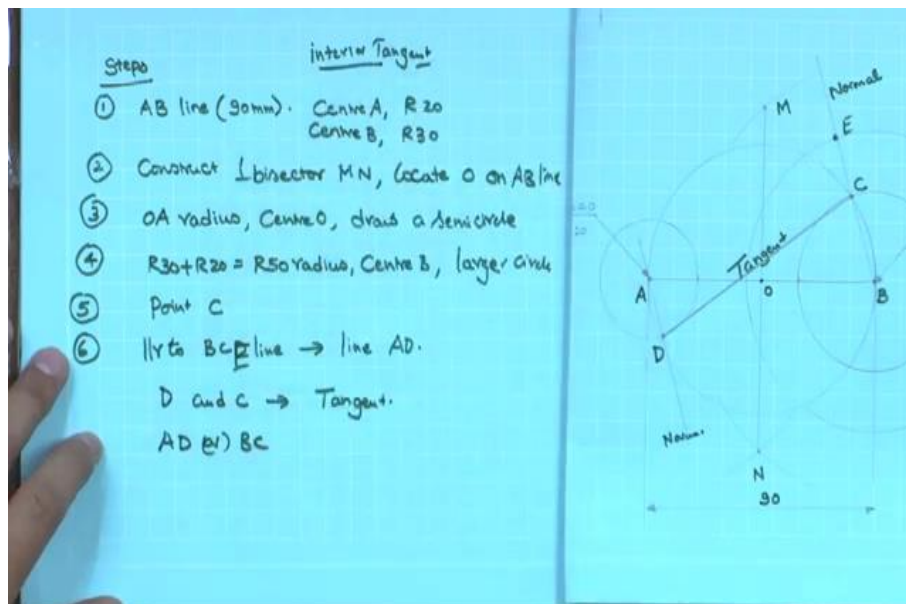 Steps
interior Tangent
① AB line (90mm). Centre A, R20
Centre B, R30
② Construct ⊥bisector MN, Locate O on AB line
③ OA radius, Centre O, draw a semicircle
④ R30+R20 = R50 radius, Centre B, larger circle
⑤ Point C
⑥ ||r to BCE line → line AD.
D and C → Tangent.
AD (or) BC
Normal
M
E
C
20
Tangent
A
O
B
D
N
90